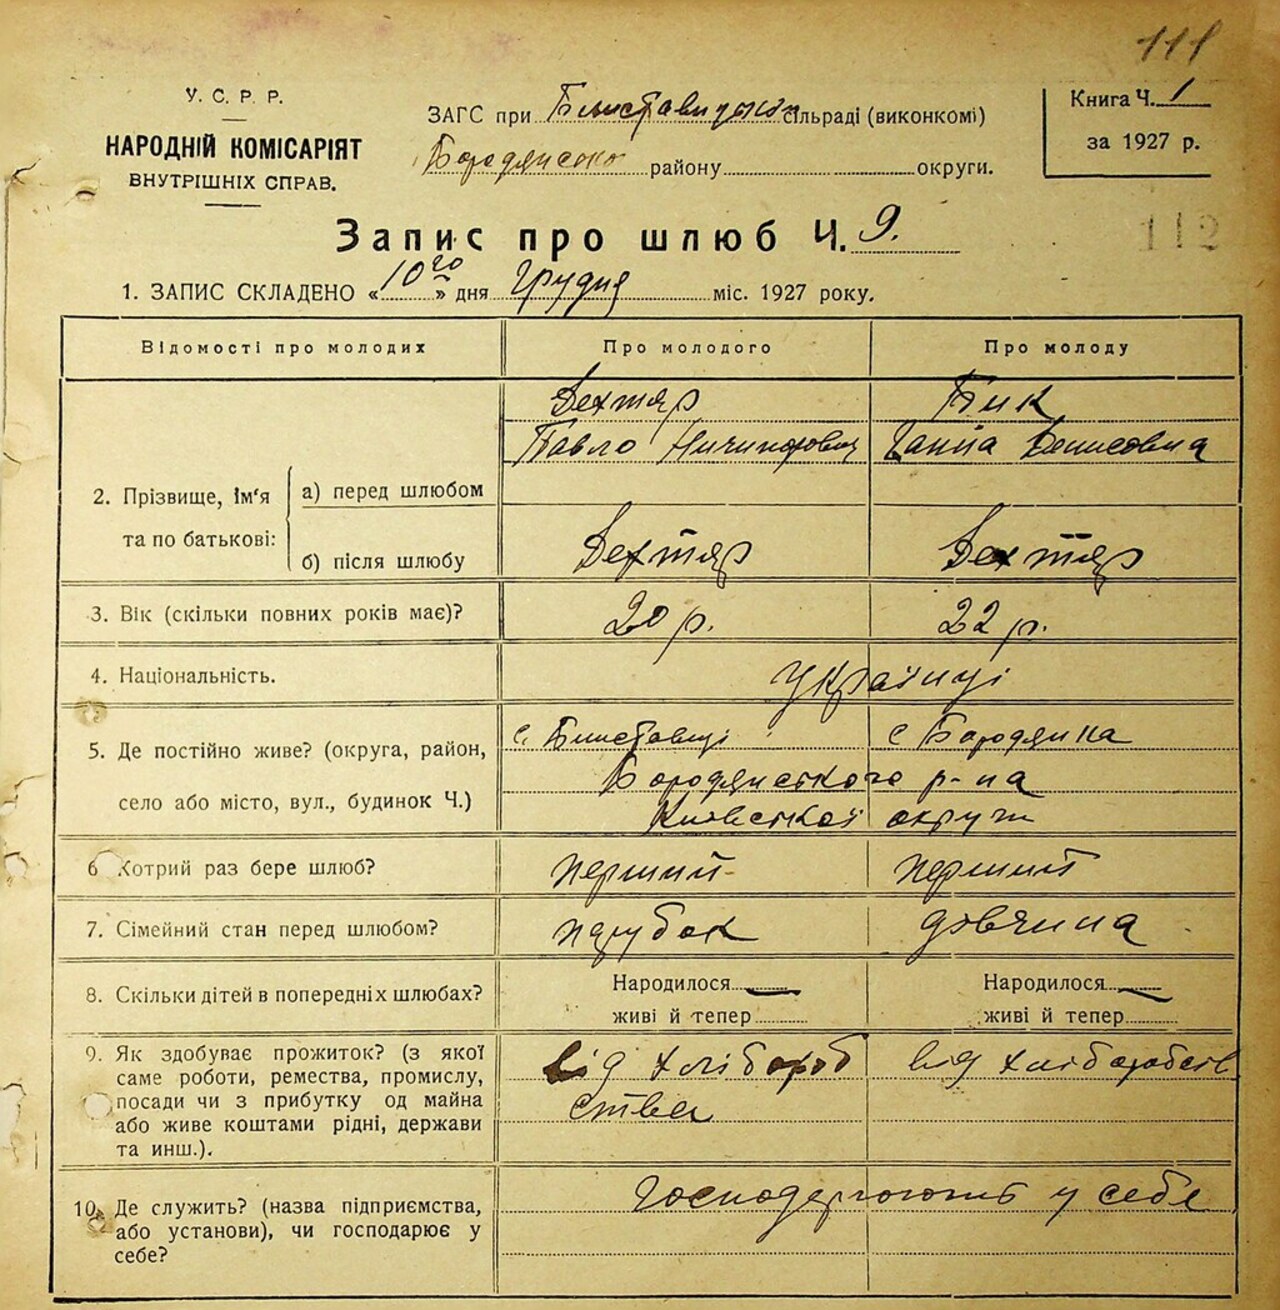 111
У. С. Р. Р.
НАРОДНІЙ КОМІСАРІЯТ
ВНУТРІШНІХ СПРАВ.
ЗАГС при Блиставицькій сільраді (виконкомі)
Бородянсько району округи.
Книга Ч. 1
за 1927 р.
112
Запис про шлюб Ч. 9.
1. ЗАПИС СКЛАДЕНО «10го» дня Грудня міс. 1927 року.
Відомості про молодих
Про молодого
Про молоду
2. Прізвище, ім'я та по батькові:
а) перед шлюбом
Дехтяр
Павло Ничипорович
Бик
Ганна Денисовна
б) після шлюбу
Дехтяр
Дехтяр
3. Вік (скільки повних років має)?
20 р.
22 р.
4. Національність.
Українці
5. Де постійно живе? (округа, район,
село або місто, вул., будинок Ч.)
с. Блиставиці
с Бородянка
Бородянського р-на
Київської округи
6 Котрий раз бере шлюб?
перший
перший
7. Сімейний стан перед шлюбом?
парубок
дівчина
8. Скільки дітей в попередніх шлюбах?
Народилося —
живі й тепер
Народилося —
живі й тепер
9. Як здобуває прожиток? (з якої
саме роботи, ремества, промислу,
посади чи з прибутку од майна
або живе коштами рідні, держави
та инш.).
від хлібороб
ства
від хліборобств
10. Де служить? (назва підприємства,
або установи), чи господарює у
себе?
Господарюють у себе